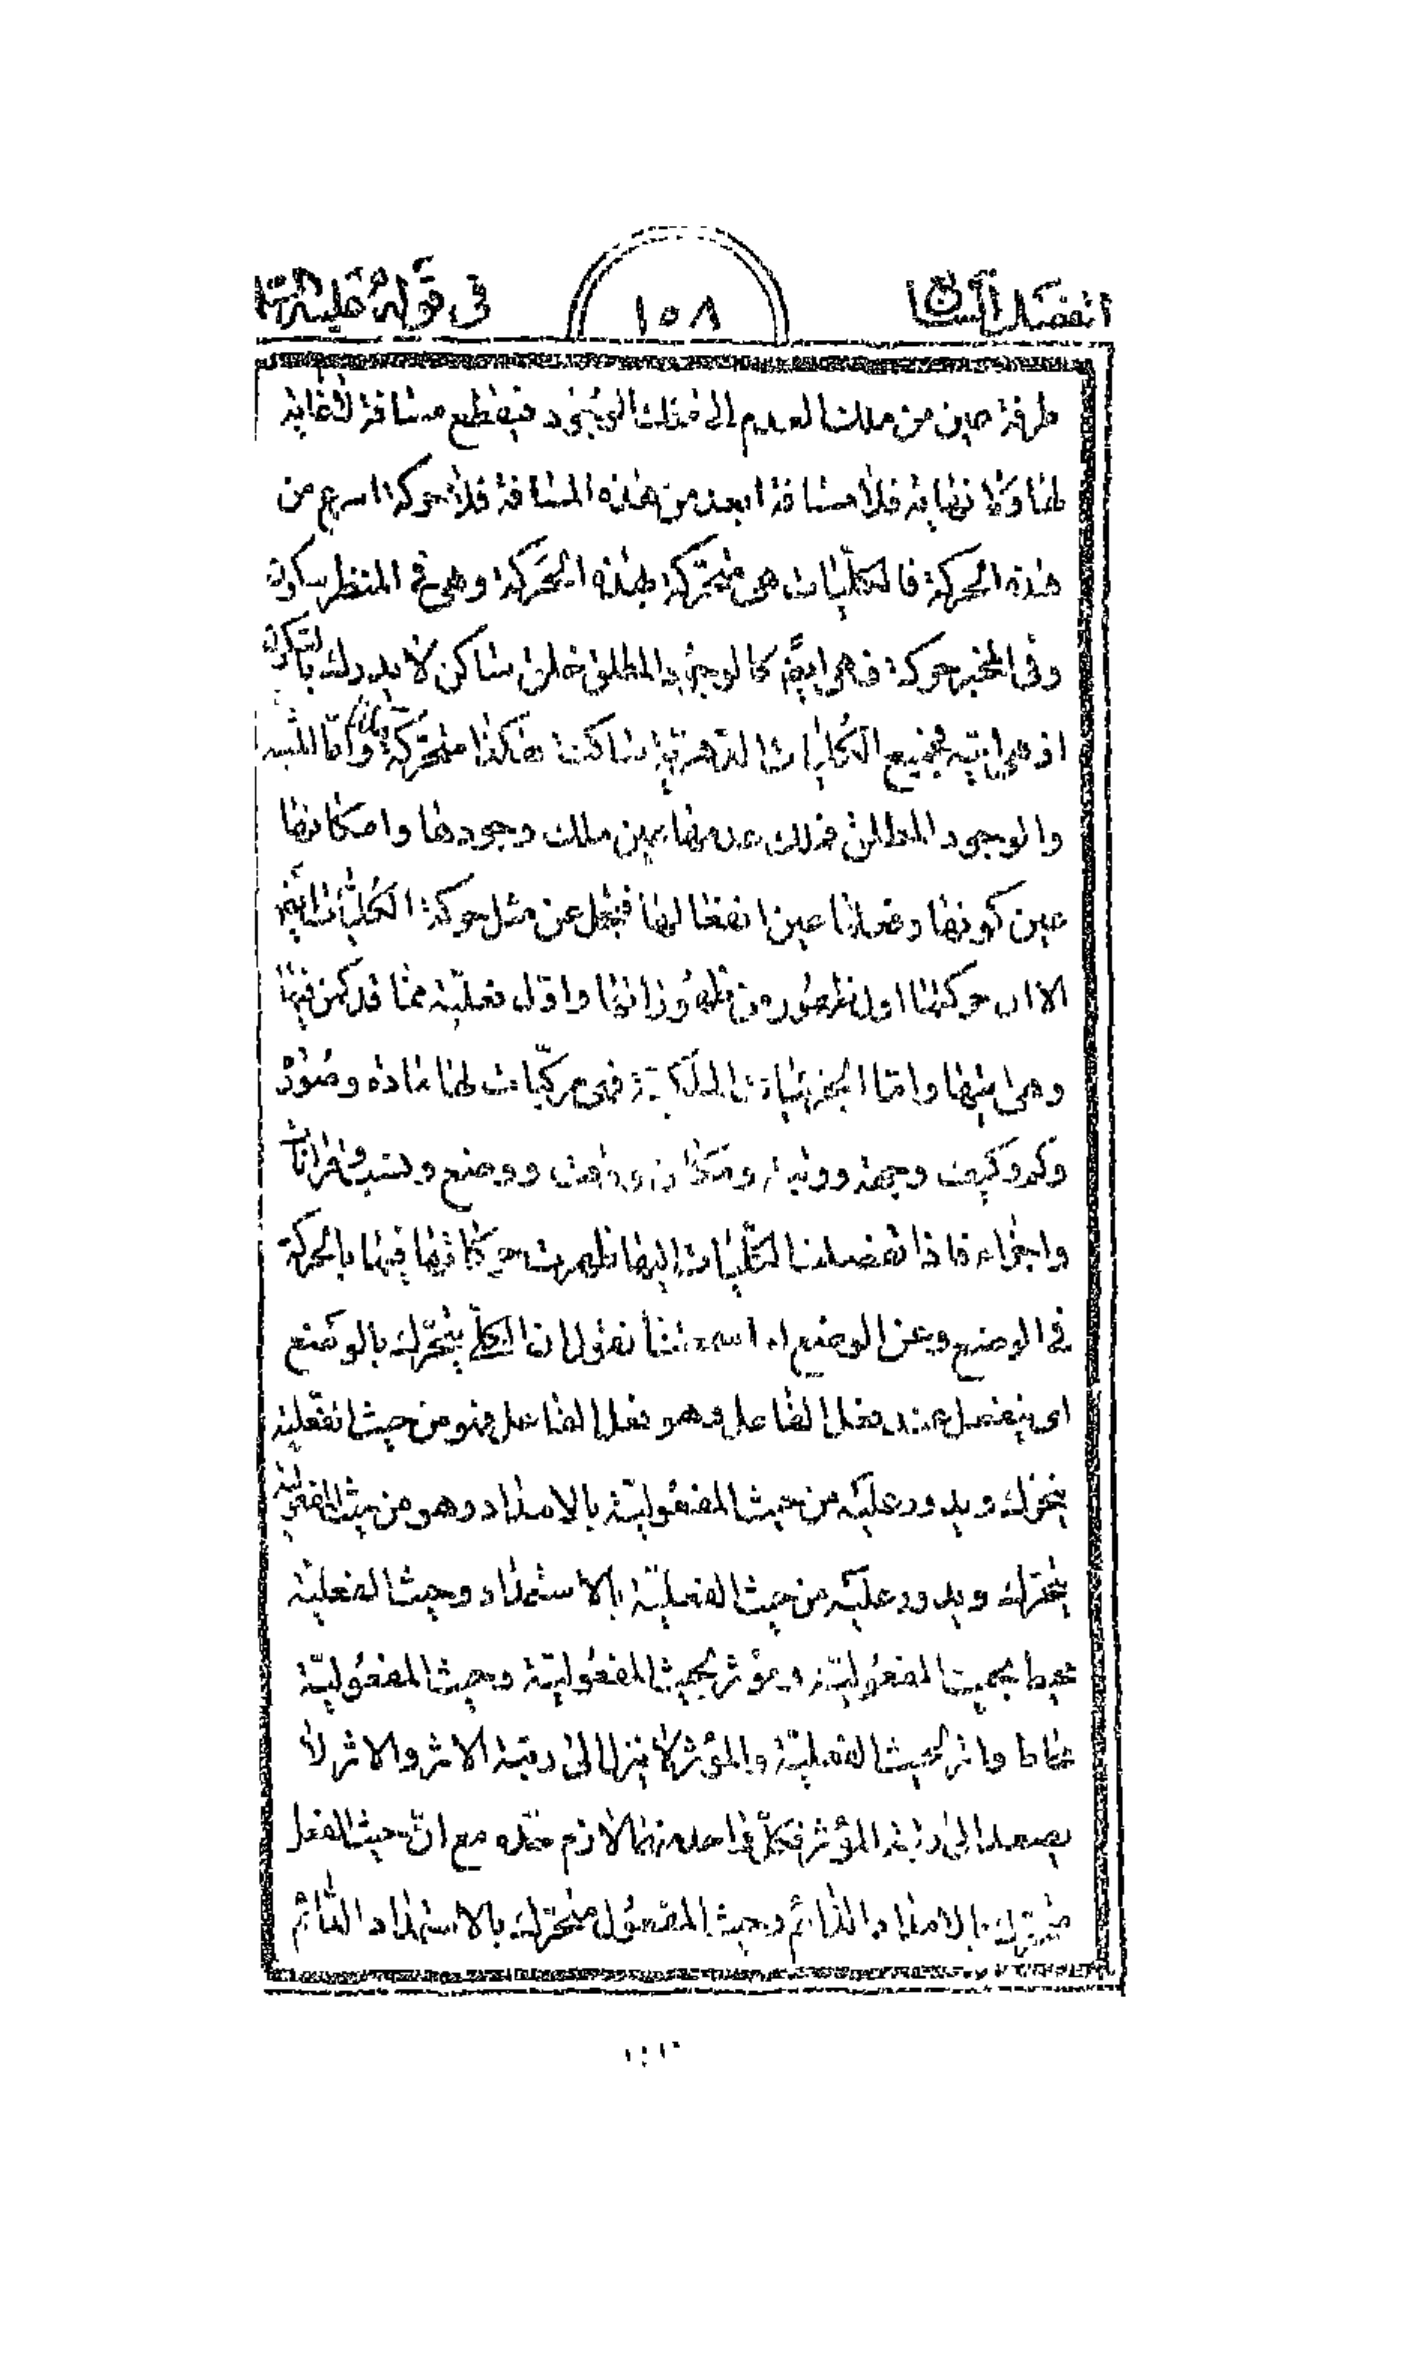 الفصل الثانى
١٥٨
فى قوله عليه السلام
طرفة عين من ملك العدم الى ملك الوجود فيقطع مسافة لا غاية
لها ولا نهاية فلا مسافة ابعد من هذه المسافة فلا حركة اسرع من
هذه الحركة فالكليات هى متحركة بهذه الحركة وهى فى المنظر ساكنة
وفى المخبر حركة فهى اية كالوجود المطلق ساكن لا يدرك بالسكون
اذ هى اية فجميع الكليات الدهرية ساكنة هكذا متحركة واما
والوجود المطلق فذلك عدمها عين ملك وجودها وامكانها
عين كونها وفعلها عين انفعالها فتجل عن مثل حركة الكليات ايضا
الا ان حركتها اول ظهور من ظهوراتها واول فعلية مما قد كمن فيها
وهى ايتها واما الجزئيات الملكية فهى مركبات لها مادة وصورة
وكم وكيف وجهة ورتبة ومكان ووقت ووضع ونسب وقرانات
واجزاء فاذا تفصلت الكليات اليها ظهرت حركاتها فيها بالحركة
فى الوضع وعن الوضع ان نقول ان الكل يتحرك بالوضع
اى ينفعل عند فعل الفاعل وهو فعل الفاعل فهو من حيث انفعليته
يتحرك ويدور عليه من حيث المفعولية بالامداد وهو من حيث المفعولية
يتحرك ويدور عليه من حيث الفعلية بالاستمداد وحيث الفعلية
محيط بحيث المفعولية ومؤثر لحيث المفعولية وحيث المفعولية
محاط واثر لحيث الفعلية والمؤثر لا ينزل الى رتبة الاثر والاثر لا
يصعد الى رتبة المؤثر فكل واحد منهما لازم حده مع ان حيث الفعل
متحرك بالامداد الدائم وحيث المفعول متحرك بالاستمداد الدائم